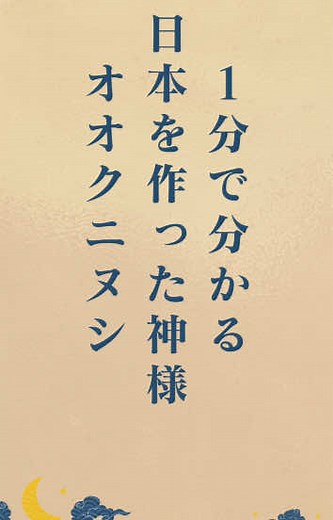 １分で分かる
日本を作った神様
オオクニヌシ